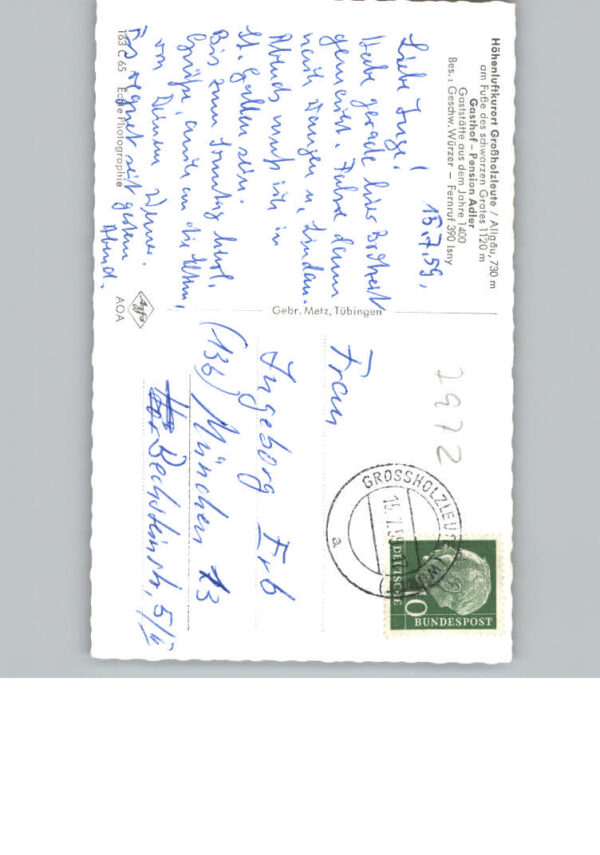 Höhenluftkurort Großholzleute / Allgäu, 730 m
am Fuße des schwarzen Grates 1120 m
Gasthof – Pension Adler
Gaststätte aus dem Jahre 1400
Bes.: Geschw. Würzer – Fernruf 390 Isny
15.7.59.
Liebe Inge!
Habe gerade hier Brotzeit
gemacht. Fahre dann
nach Wangen u. Lindau.
Abends muß ich in
St. Gallen sein.
Bis zum Sonntag herzl.
Grüße, auch an die Eltern,
von Deinem Werner.
Es regnet seit gestern
Abend.
163 C 65 Echte Photographie
Agfa
AOA
Gebr. Metz, Tübingen
2972
Frau
Ingeborg Erb
(13b) München 13
Bechsteinstr. 5/II
GROSSHOLZLEUTE
15.7.59
a
DEUTSCHE
BUNDESPOST
10